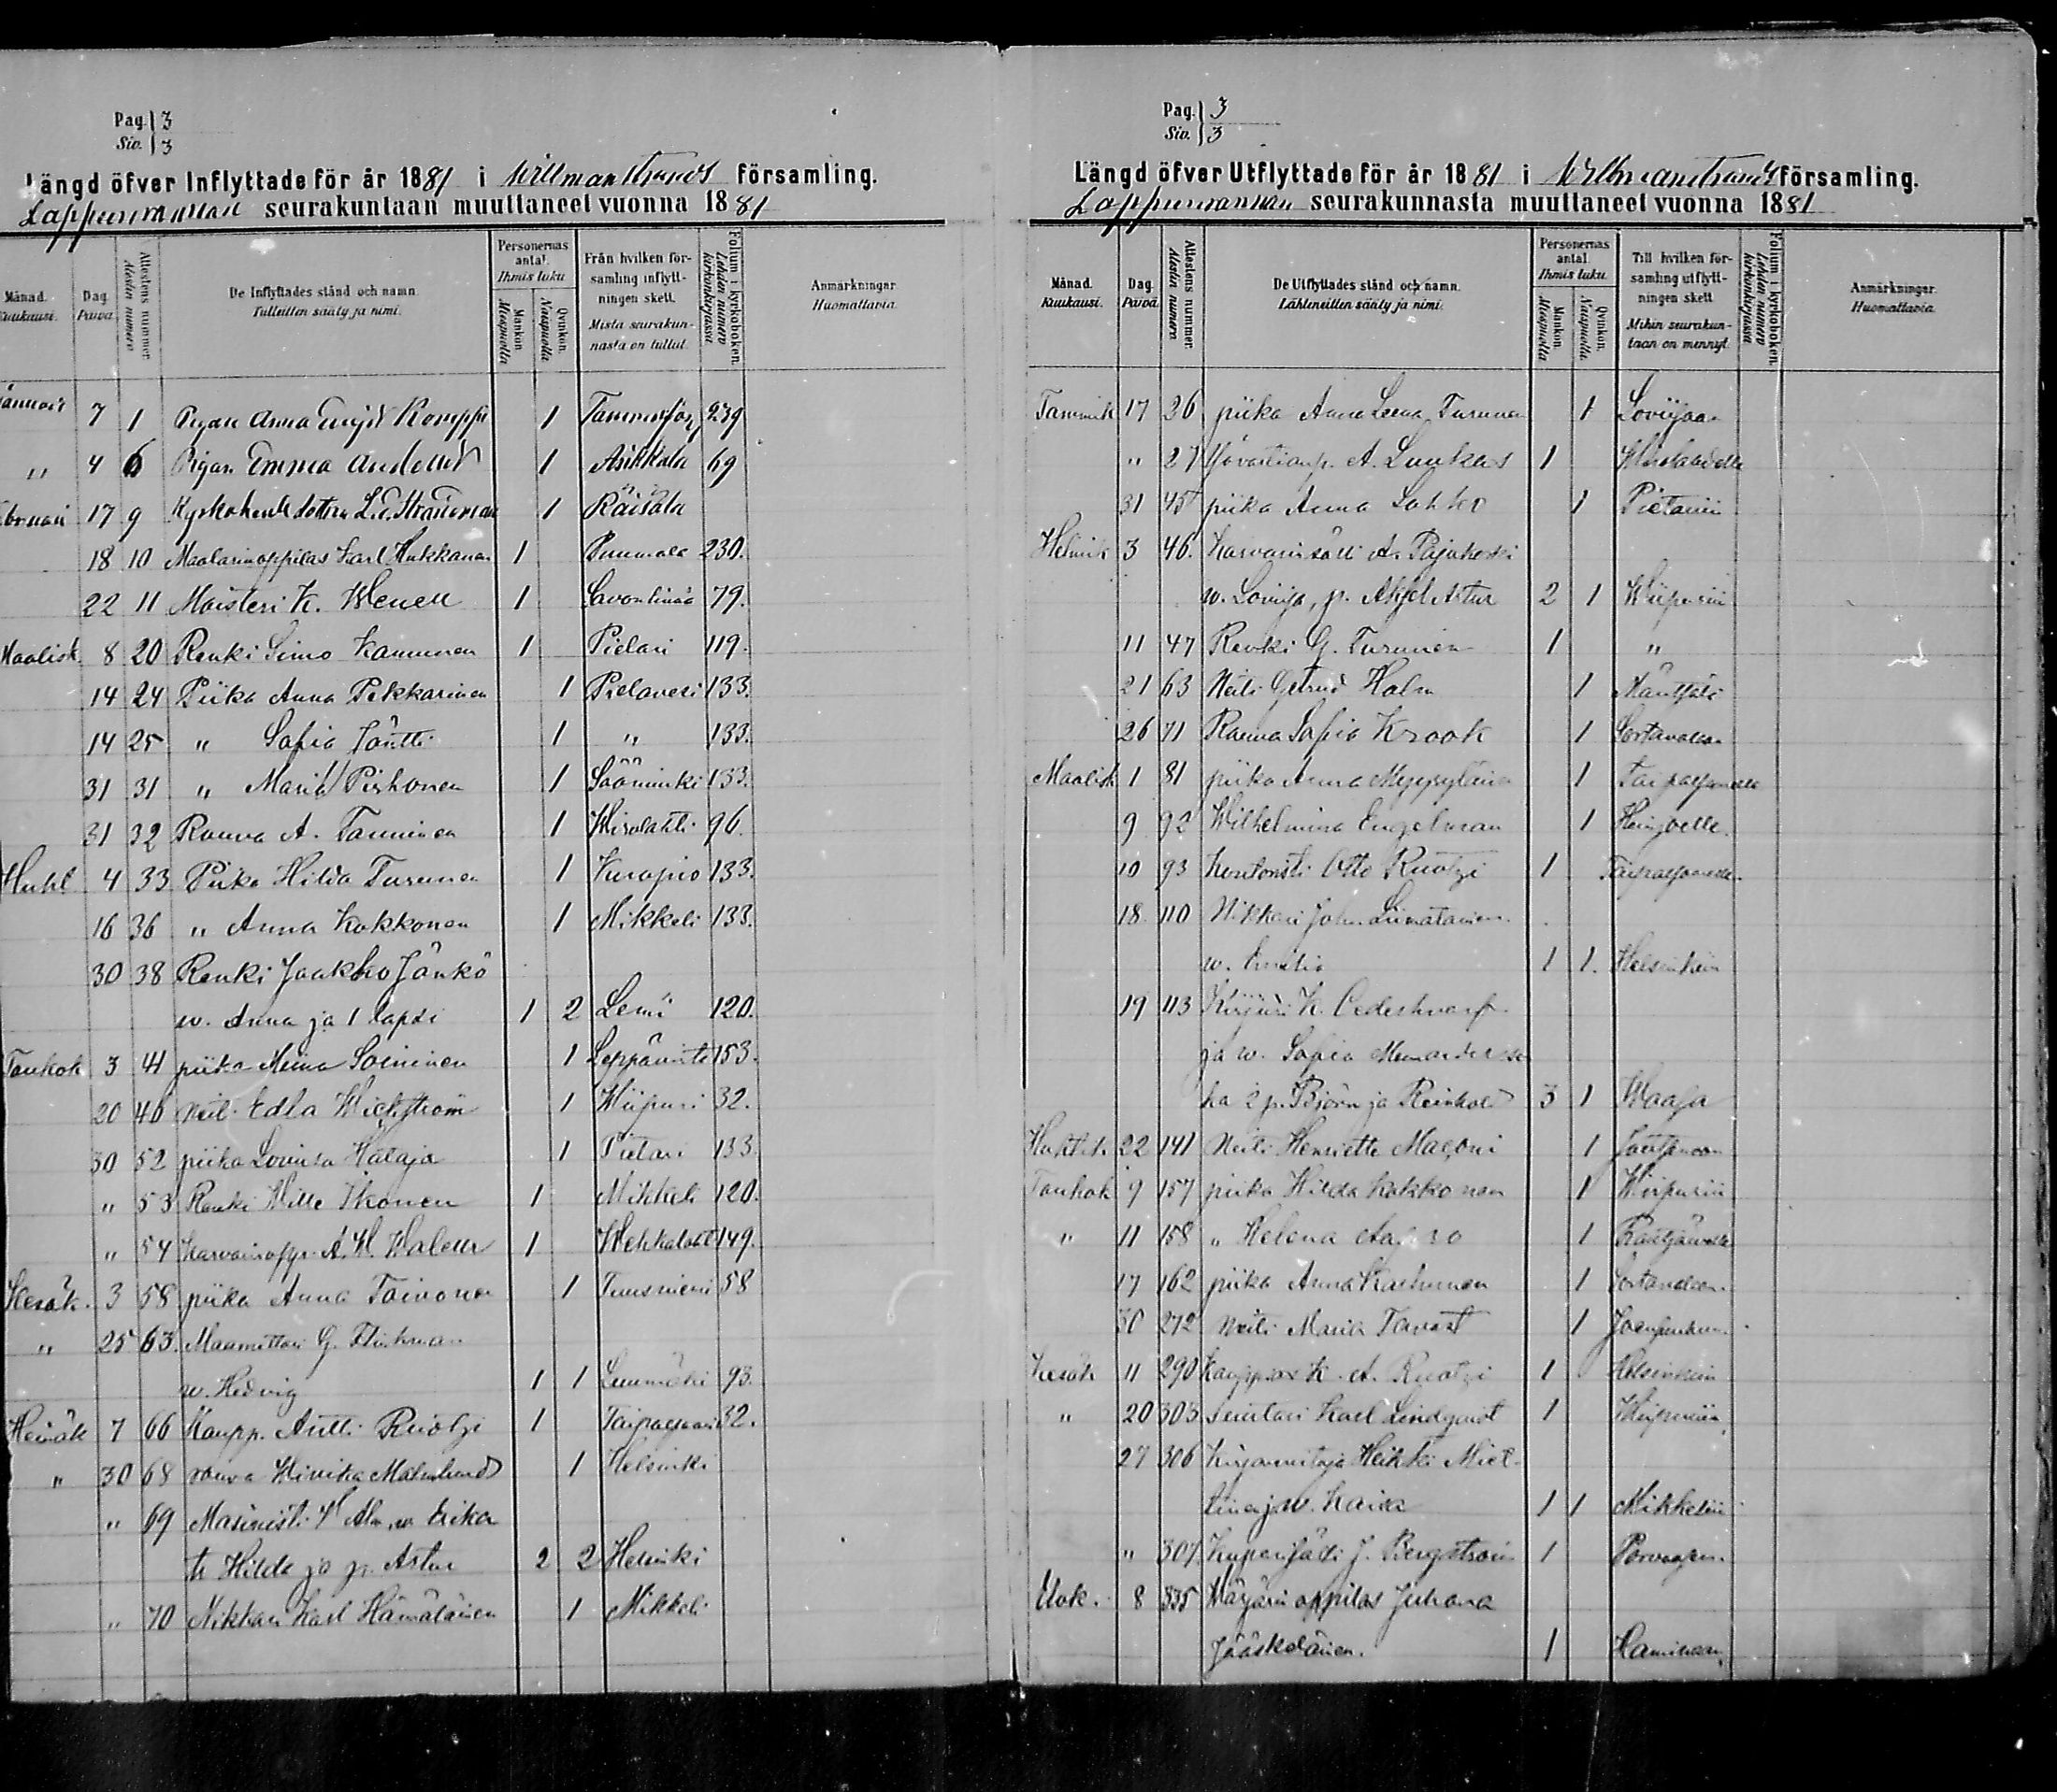 Pag. 3
Siv. 3
Längd öfver Inflyttade för år 1881 i Willmanstrands församling.
Lappeenrannan seurakuntaan muuttaneet vuonna 1881
Månad. Kuukausi.
Dag. Päivä.
Attestens nummer. Atestin numero
De Inflyttades stånd och namn. Tulleitten sääty ja nimi.
Personernas antal. Ihmis luku
Mankön. Miespuolia
Qvinkön. Naispuolia
Från hvilken församling inflyttningen skett. Mista seurakunnasta on tullut.
Folium i kyrkoboken. Lehden numero kirkonkirjassa
Anmärkningar. Huomattavia.
Januari 7 1 Pigan Anna 1 239
„ 4 6 Pigan Emma 1 Asikkala 69
Februari 17 9 1 Räisälä
18 10 Maalarinoppilas Karl Hukkanen 1 Puumala 230.
22 11 Maisteri K. 1 Savonlinna 79.
Maalisk. 8 20 Renki Simo Kanninen 1 Pielavi 119.
14 24 Piika Anna Pekkarinen 1 Pielavesi 133.
14 25 „ Sofia Jäntti 1 „ 133.
31 31 „ Maria Pirhonen 1 Sääminki 133.
31 32 Rouva A. Tanninen 1 Wirolahti 96.
Huht 4 33 Piika Hilda Turunen 1 Kuopio 133.
16 36 „ Anna Kokkonen 1 Mikkeli 133.
30 38 Renki Jaakko Jänkö
w. Anna ja 1 lapsi 1 2 Lemi 120.
Toukok 3 41 piika Miina Soininen 1 Leppävirta 153.
20 46 neit. Edla Wickström 1 Wiipuri 32.
30 52 piika Loviisa Hataja 1 Pietari 133
„ 53 Renki Wille Ikonen 1 Mikkeli 120.
„ 54 Karvarinopp. A. W. 1 Wehkalaht 149.
Kesäk. 3 58 piika Anna Toivonen 1 Tuusniemi 58
„ 25 63. Maamittari G. Flinkman
w. Hedvig 1 1 Luumäki 93.
Heinäk 7 66 Kaupp. Antti Ruotzi 1 Taipalsaari 32.
„ 30 68 rouva Malmlund 1 Helsinki
„ 69 Masinisti Alm, w. Erika
t. Hilda ja p. Artur 2 2 Helsinki
„ 70 Nikkari Karl Hämäläinen 1 Mikkeli
Pag. 3
Siv. 3
Längd öfver Utflyttade för år 1881 i Willmanstrands församling.
Lappeenrannan seurakunnasta muuttaneet vuonna 1881
Månad. Kuukausi.
Dag. Päivä.
Attestens nummer. Atestin numero
De Utflyttades stånd och namn. Lähteneitten sääty ja nimi.
Personernas antal. Ihmis luku.
Mankön. Miespuolia
Qvinkön. Naispuolia.
Till hvilken församling utflyttningen skett. Mihin seurakuntaan on mennyt.
Folium i kyrkoboken. Lehden numero kirkonkirjassa
Anmärkningar. Huomattavia.
Tammik 17 26 piika Anna Leena Turunen 1 Loviisaan
„ 27 A. Luukas 1
31 45 piika Anna Lohko 1 Pietariin
Helmik 3 46. Karvarinsälli A. Pajukoski
w. Loviisa, p. Axel Artur 2 1 Wiipuriin
11 47 Renki G. Turunen 1 „
21 63 Neiti Getrud Holm 1
26 71 Rouva Sofia Krook 1 Sortavalaan
Maalisk 1 81 piika Anna Myyryläinen 1 Taipalsaarelle
9 92 Wilhelmina Engelman 1 Heinjoelle.
10 93 Kontoristi Otto Ruotzi 1 Taipalsaarelle.
18 110 Nikkari Joh. Liimatainen
w. Emilia 1 1. Helsinkiin
19 113 K.
ja w. Sofia
ka 2 p. Björn ja Reinhold 3 1 Waasa
Huhtik 22 141 Neiti Henriette Maconi 1 Joutsenoon
Toukok 9 157 piika Hilda Kokkonen 1 Wiipuriin
„ 11 158 „ Helena 1 Rautjärvelle
17 162 piika Anna Karhunen 1 Sortavalaan.
30 272 Neiti Maria Tavast 1 Joensuuhun.
Kesäk 11 290 Kauppias K. A. Ruotzi 1 Helsinkiin
„ 20 303 Karl Lindqvist 1 Wiipuriin
27 306 Kirjansitoja Heikki Miet-
tinen ja w. Kaisa 1 1 Mikkeliin
„ 307 J. Bergström 1 Porvoosen.
Elok. 8 335 Värjärin oppilas Juhana
Jääskeläinen. 1 Haminaan.